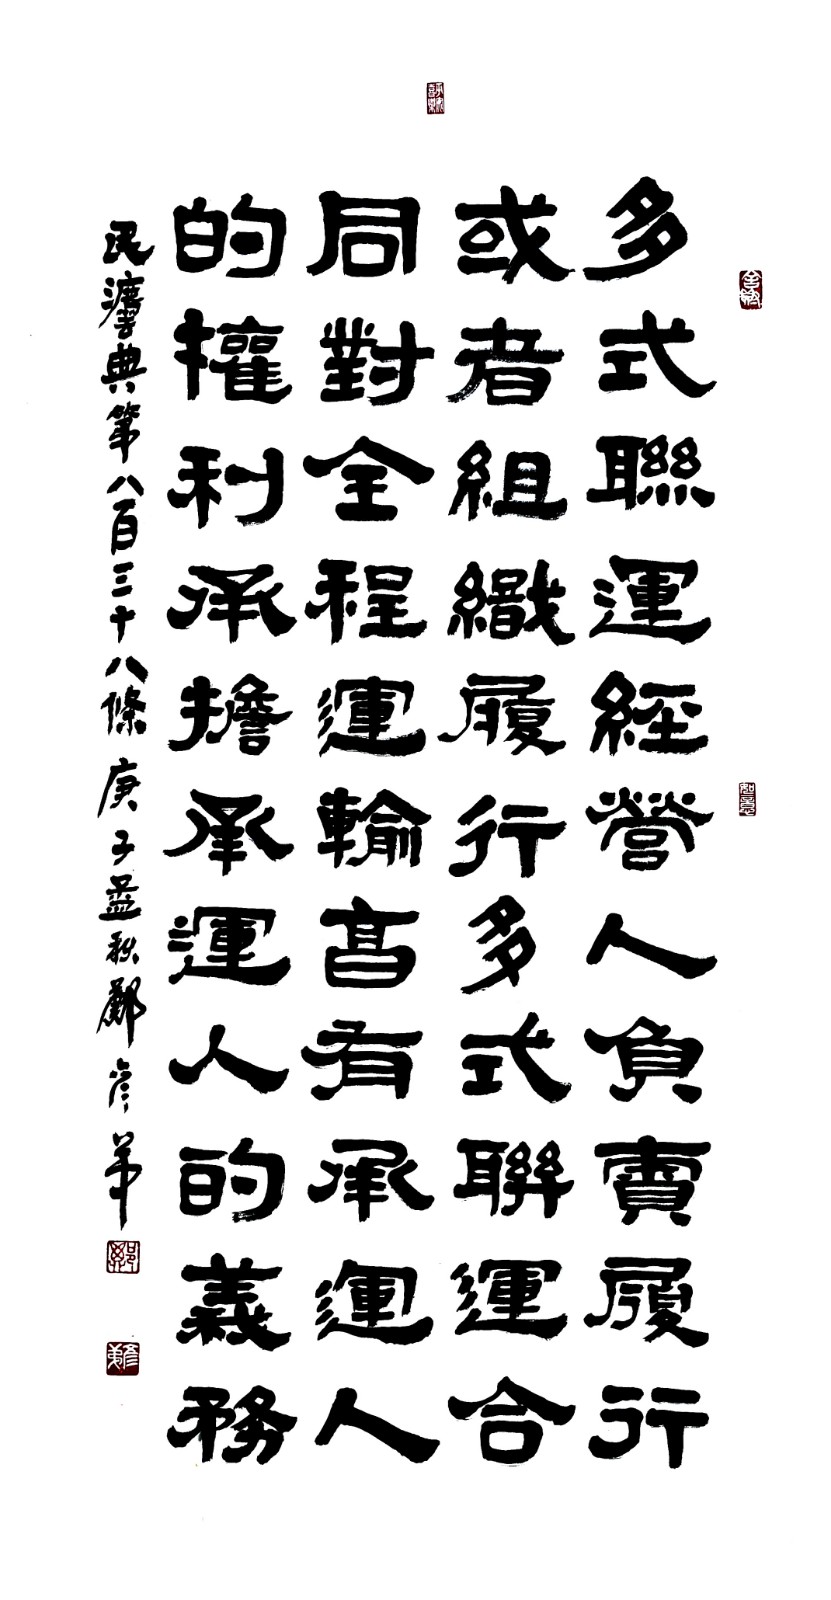 多式聯運經營人負責履行
或者組織履行多式聯運合
同對全程運輸享有承運人
的權利承擔承運人的義務
民灋典第八百三十八條 庚子孟秋
如意